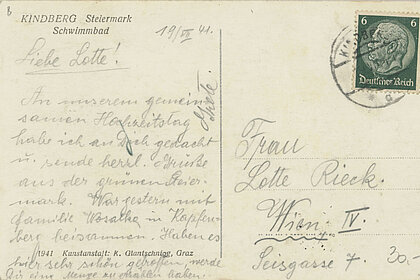 KINDBERG Steiermark
Schwimmbad
19/VII 41.
Liebe Lotte!
An unserem gemein-
samen Hochzeitstag
habe ich an Dich gedacht
u. sende herzl. Grüße
aus der grünen Steier-
mark. War gestern mit
Familie Wosatka in Kapfen-
berg beisammen. Haben es
hier sehr schön getroffen, werde
Dir eine Menge zu erzählen haben.
1941 Kunstanstalt: K. Glantschnig, Graz
6 6
Deutsches Reich
Frau
Lotte Rieck.
Wien IV.
Seisgasse 7.